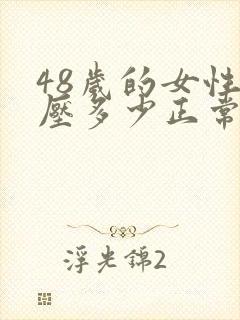 48歲的女性
壓多少正常
浮光錦2